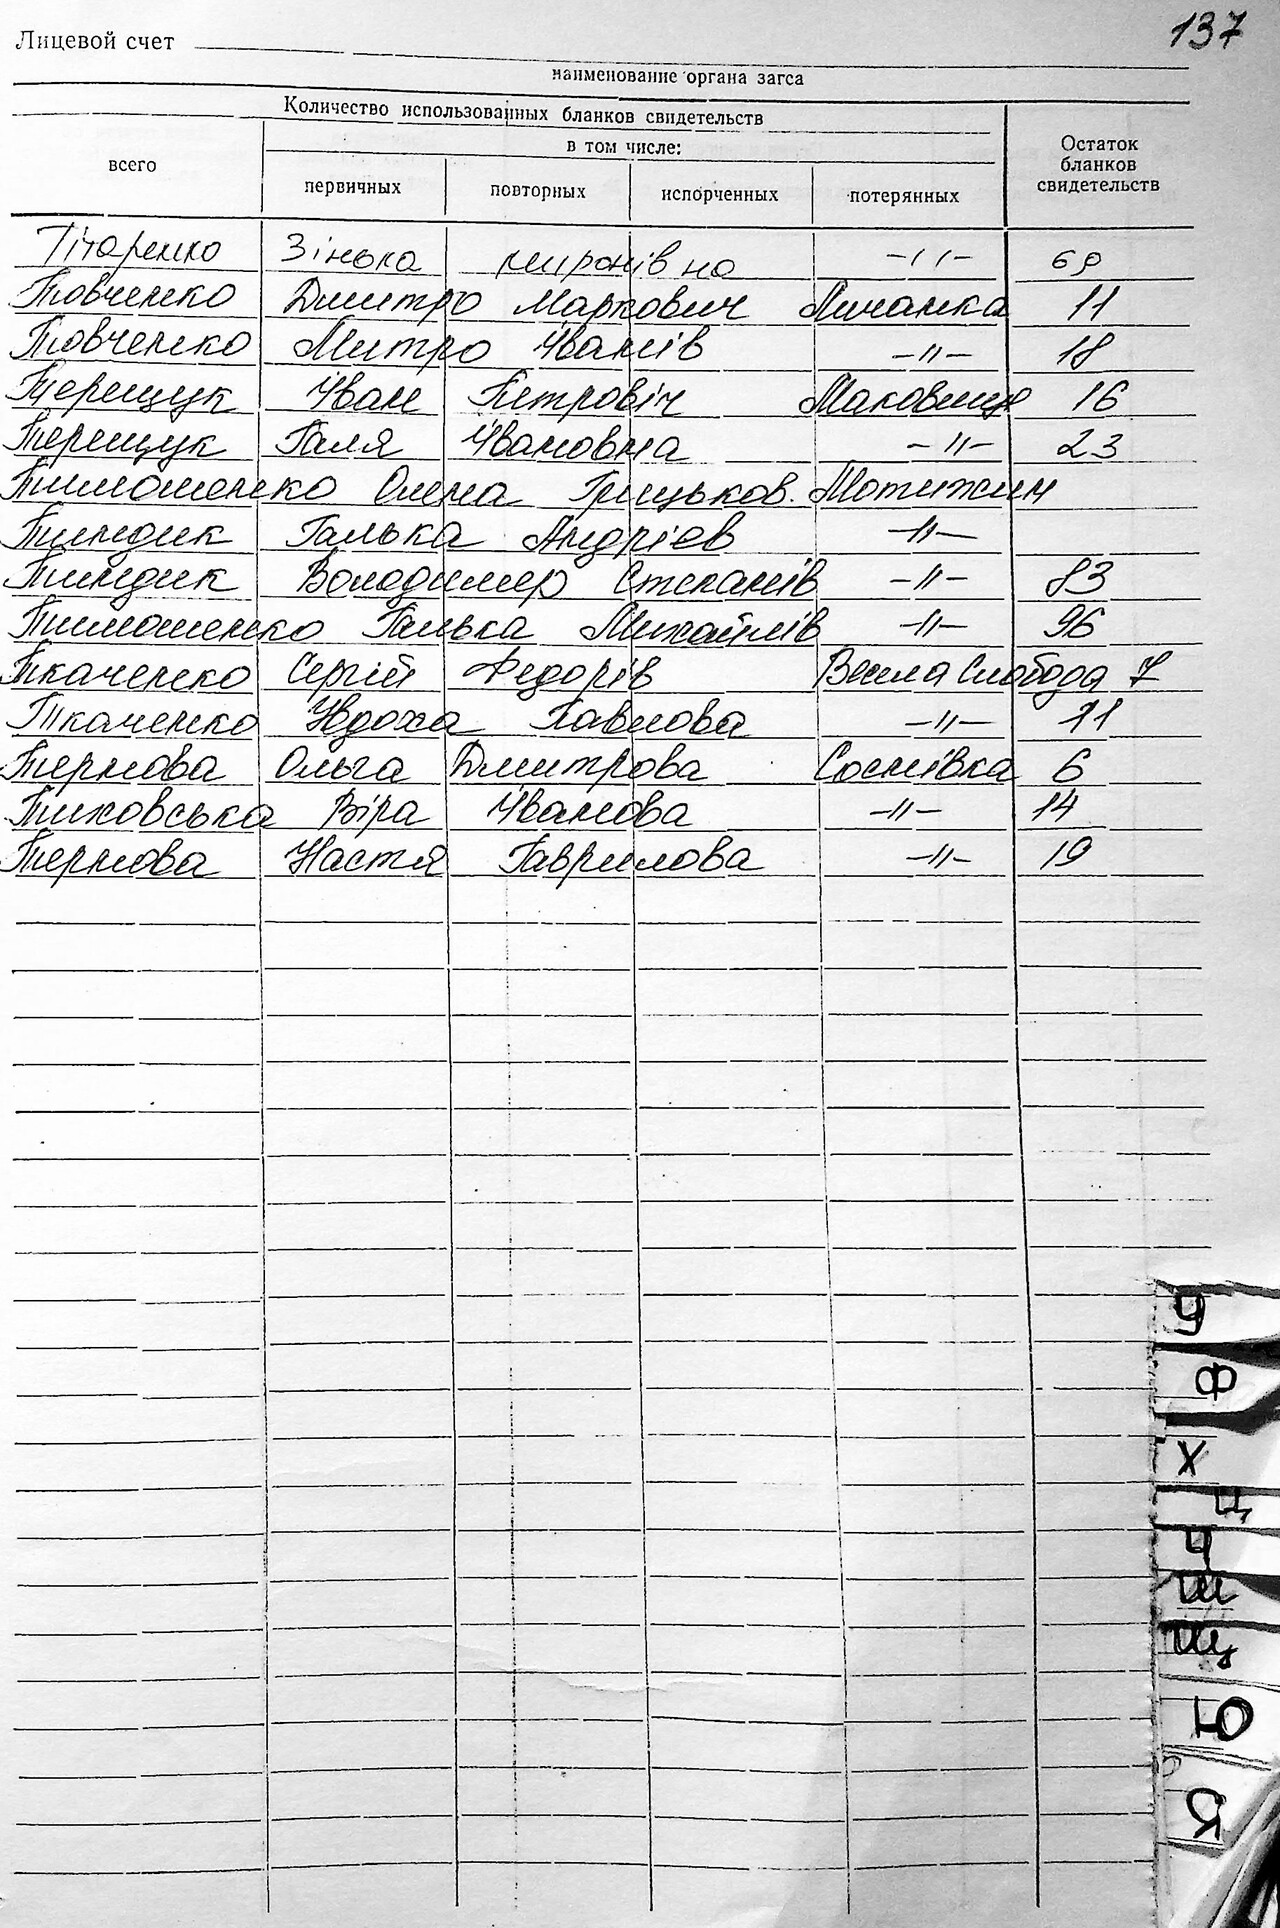 137
Лицевой счет
наименование органа загса
Количество использованных бланков свидетельств
в том числе:
Остаток бланков свидетельств
всего
первичных повторных испорченных потерянных
Тітаренко Зінька миронівна -//- 69
Товченко Дмитро Маркович Личанка 11
Товченко Митро Іванів -//- 18
Терещук Іван Петровіч Маковище 16
Терещук Галя Івановна -//- 23
Тимошенко Олена Грицьков. Мотижин
Тиндик Галька Андріев -//-
Тиндик Володимер Степанів -//- 83
Тимошенко Галька Михайлів -//- 96
Ткаченко Сергій Федорів Весела Слобода 7
Ткаченко Явдоха Павлова -//- 11
Тернова Ольга Дмитрова Соснівка 6
Тиховська Віра Іванова -//- 14
Тернова Настя Гаврилова -//- 19
У
Ф
Х
Ц
Ч
Ш
Щ
Ю
Я